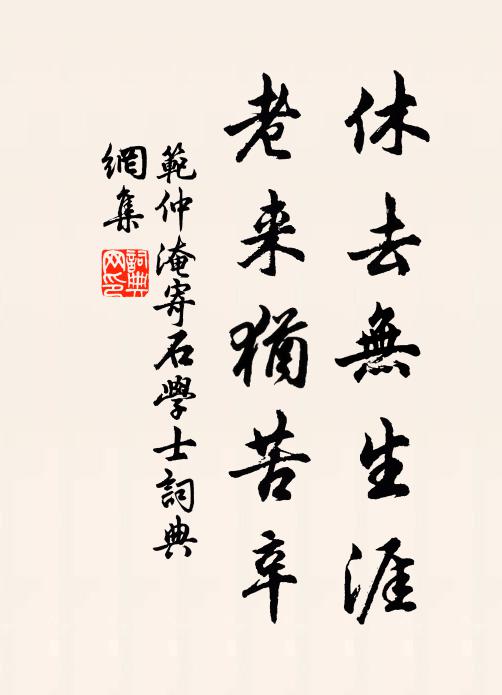 休去無生涯
老来猶苦辛
範仲淹寄石學士詞典
網集
詞典
网印